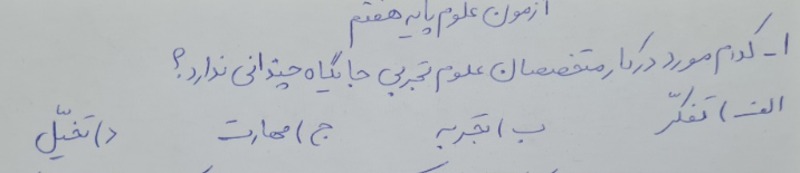 آزمون علوم پایه هفتم
۱- کدام مورد در کار متخصصان علوم تجربی جایگاه چندانی ندارد؟
الف) تفکّر ب) تجربه ج) مهارت د) تخیّل